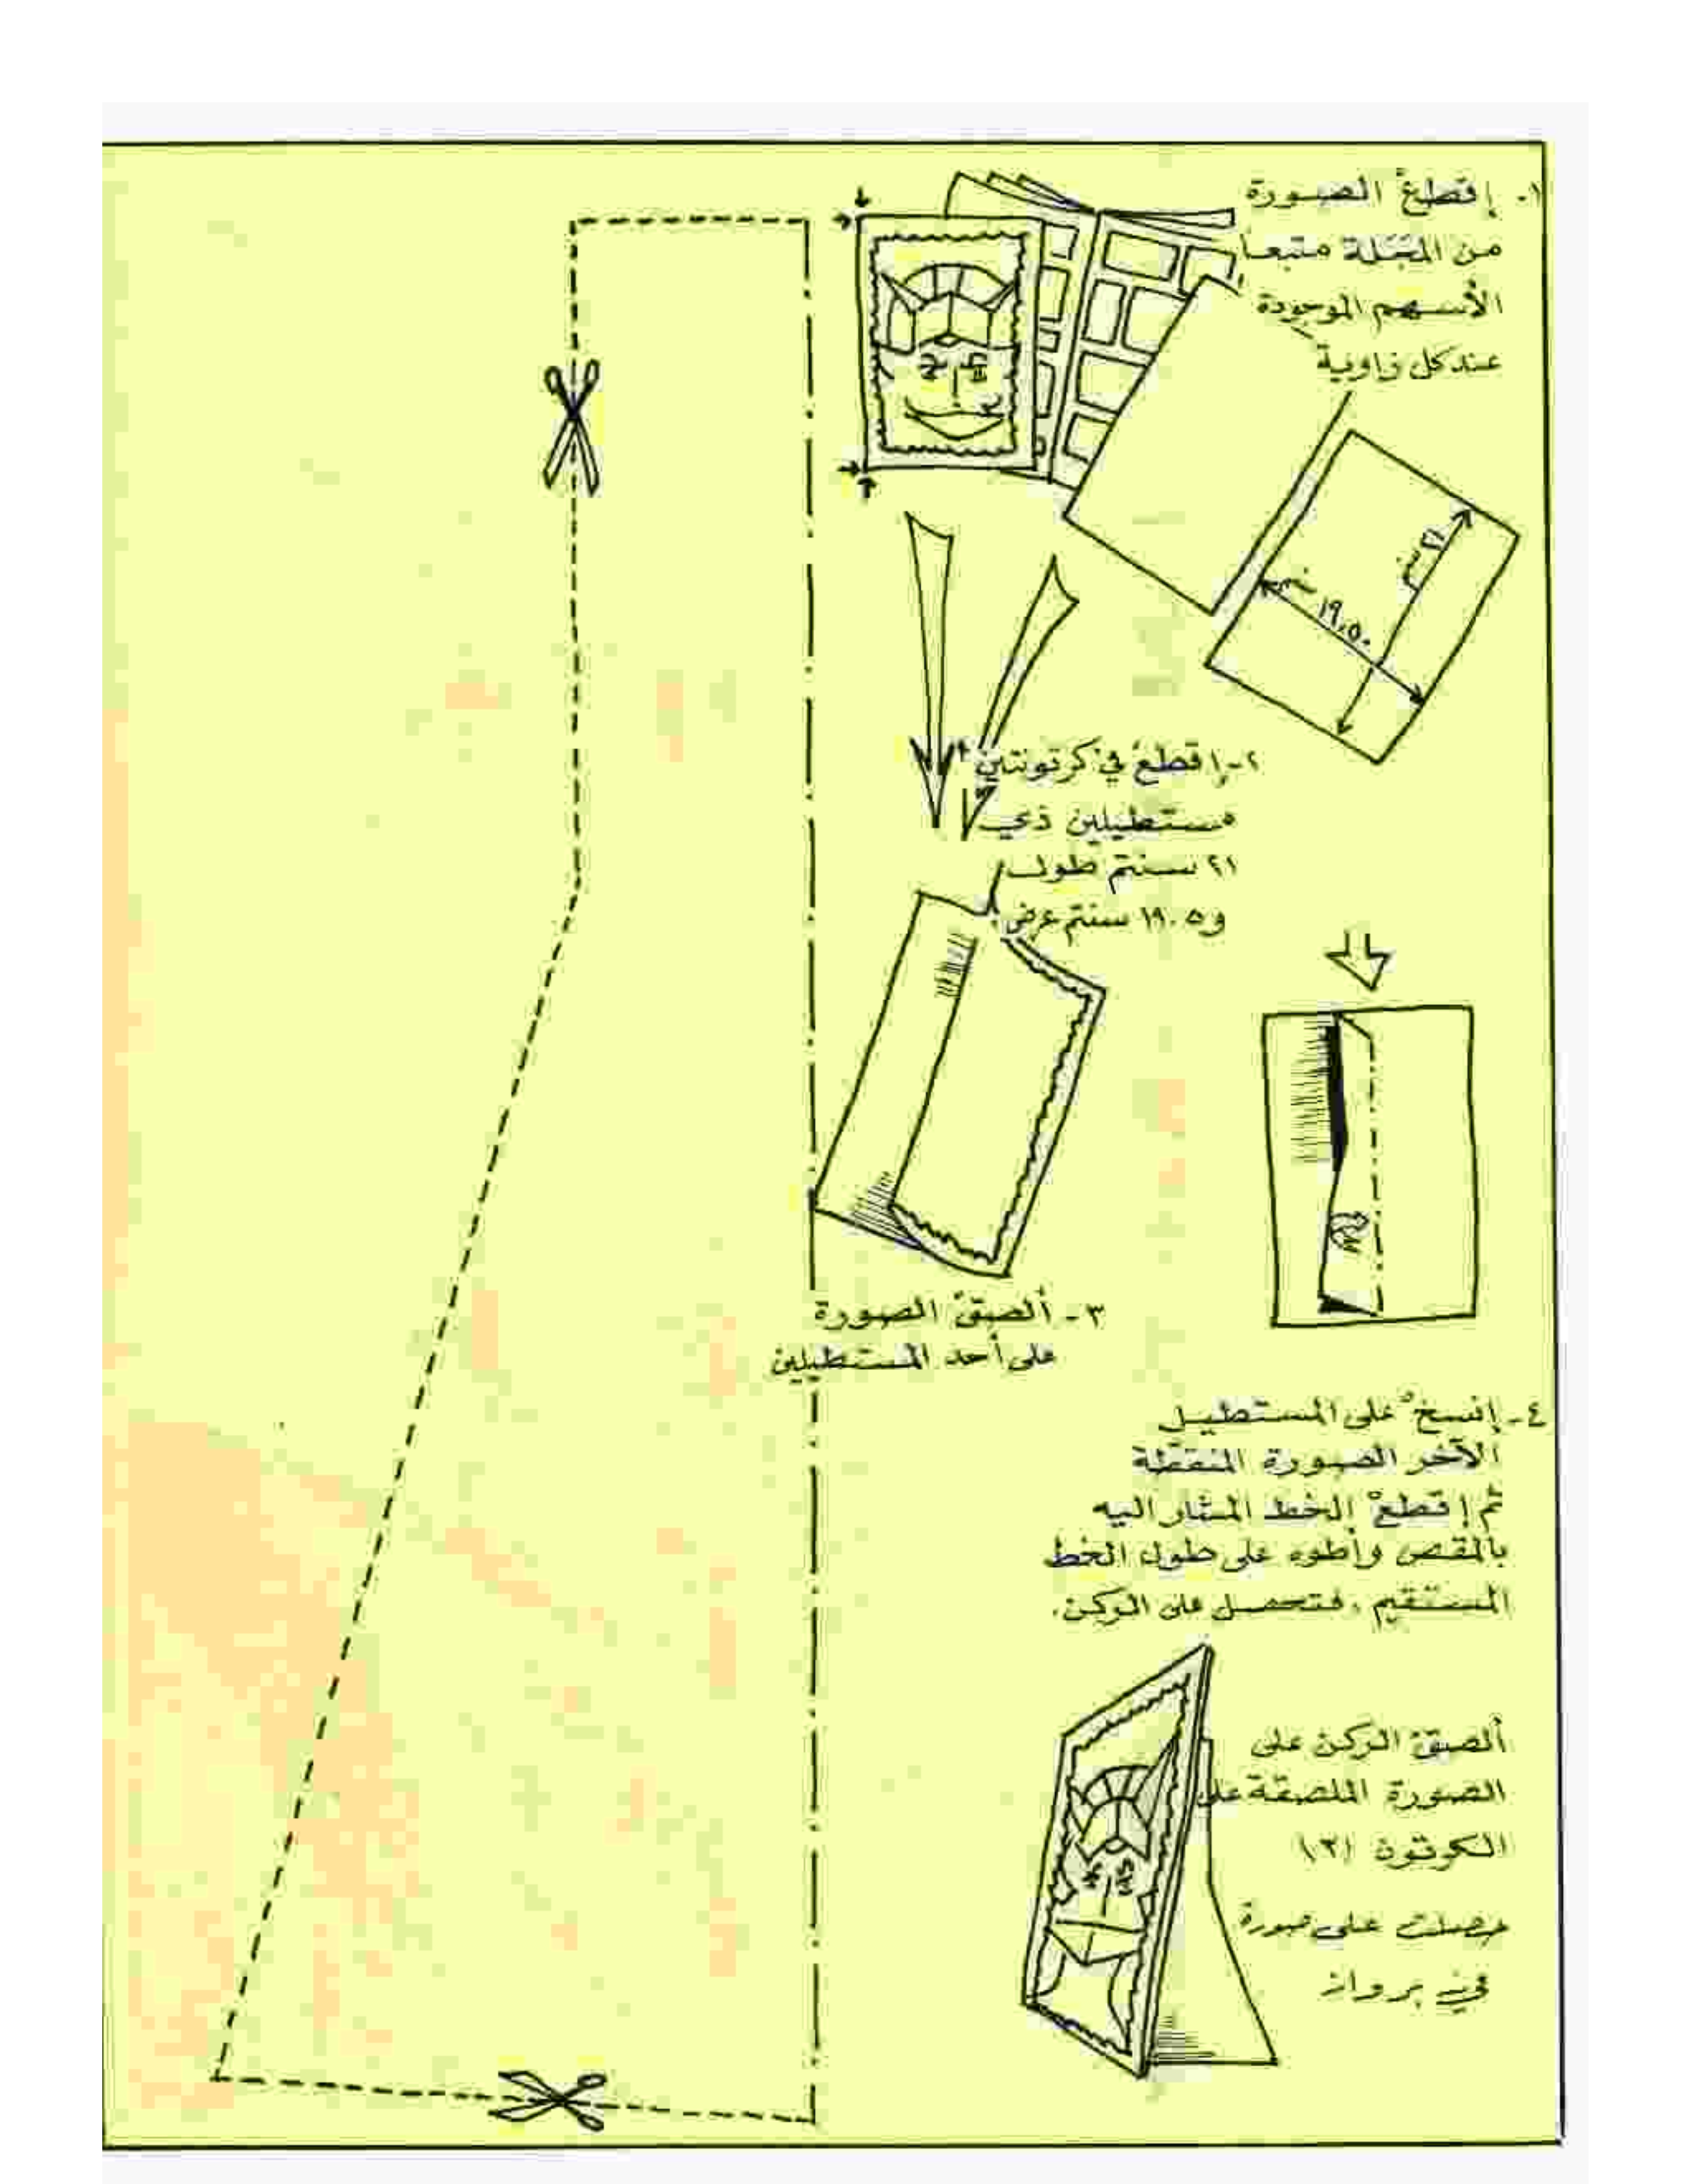 ١- إقطعْ الصورة
من المجلة متبعاً
الأسهم الموجودة
عند كل زاوية
٢١ سنتم
١٩،٥٠ سنتم
٢- إقطعْ في كرتونتين
مستطيلين ذي
٢١ سنتم طول
و ١٩.٥ سنتم عرض
٣- ألصقْ الصورة
على أحد المستطيلين
٤- إنسخْ على المستطيل
الآخر الصورة المنقطة
ثم إقطعْ الخط المشار اليه
بالمقص وأطوه على طول الخط
المستقيم، فتحصل على الركن.
ألصقْ الركن على
الصورة الملصقة على
الكرتون (٣)
حصلت على صورة
في برواز